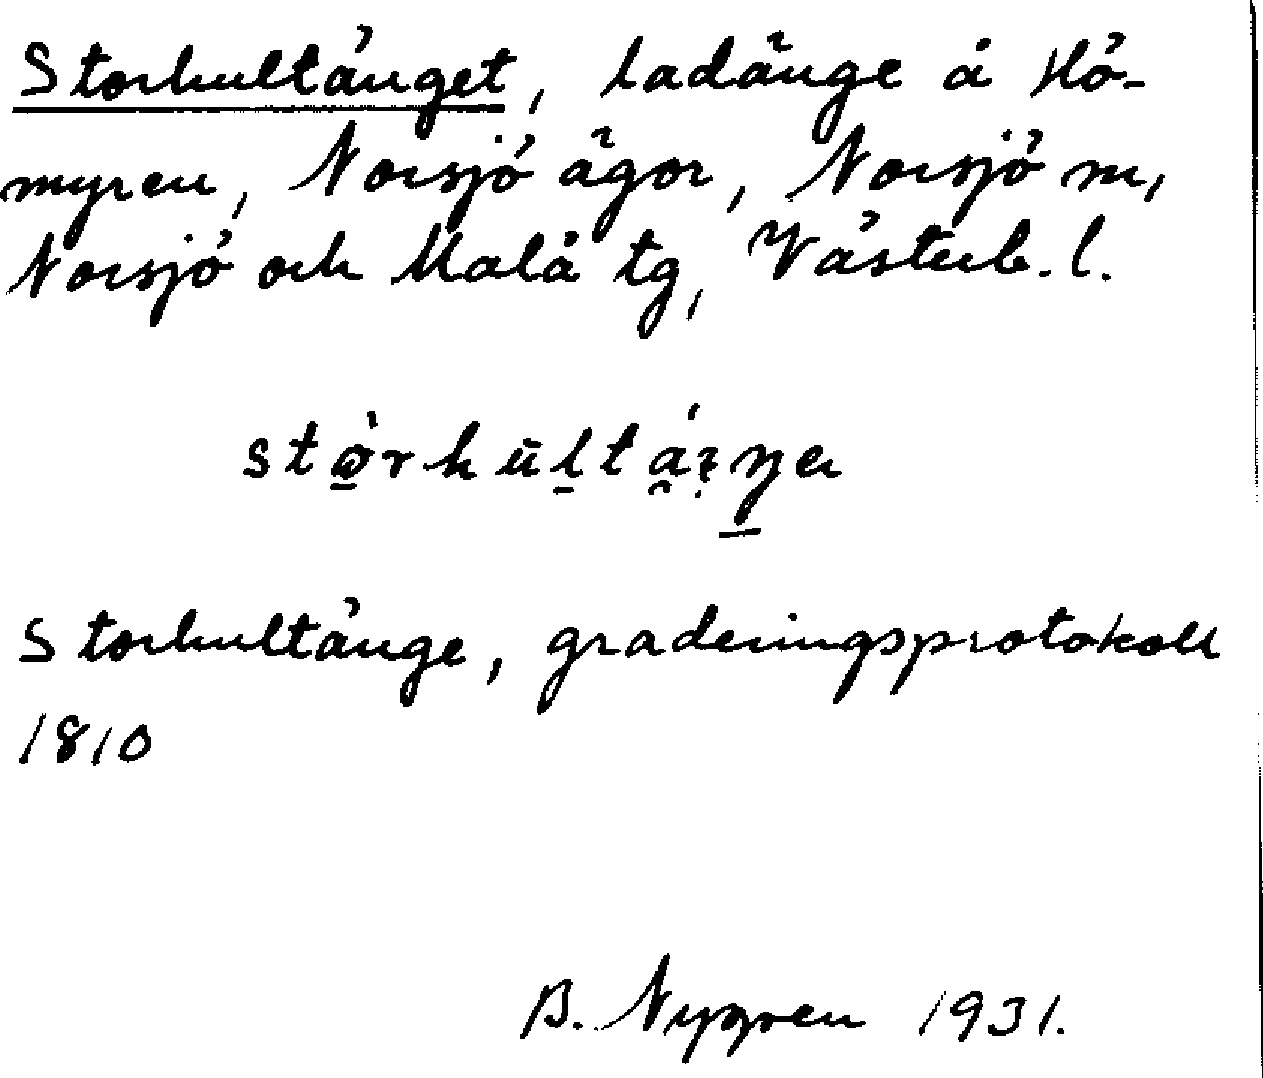 Storhultänget, ladänge å Hö-
myren, Norsjö ägor, Norsjö sn,
Norsjö och Malå tg, Västerb. l.
Storhultänge, graderingsprotokoll
1810
B. Nygren 1931.